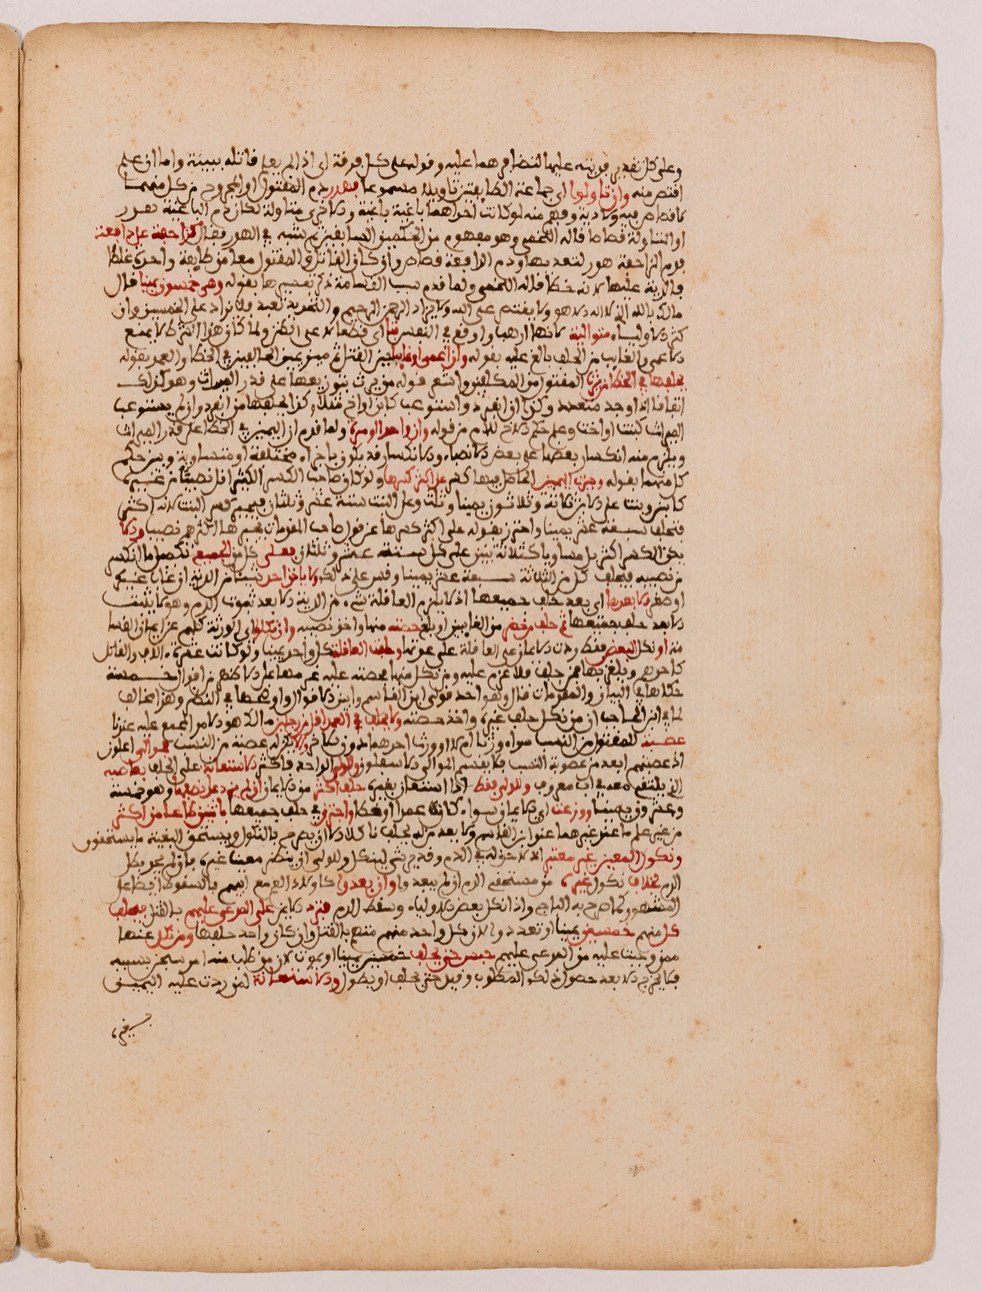 وعلى كل تقدير فديته عليها لتضافرهما عليه وقوله على كل فرقة اي اذا لم يعلم قاتله ببينة واما ان علم
اقتص منه وان تاولوا اي جماعة الطايفتين تاويلا مسموعا فهدر دم المقتول او المجروح من كل منهما
لا قصاص فيه ولا دية وفهم منه لو كانت احداهما باغية باغية والاخرى متاولة لكان دم الباغية هدر
او المتاولة قصاصا قاله اللخمي وهو مفهوم من الحكمين السابقين ثم شبه في الهدر فقال كزاحفة على دافعة
فدم الزاحفة هدر لتعديها ودم الدافعة قصاص وان كان القاتل والمقتول معا من طايفة واحدة غلطا
فالدية عليها لانه خطا قاله اللخمي ولما قدم سبب القسامة ذكر تفسيرها بقوله وهي خمسون يمينا قال
مالك بالله الذي لا اله الا هو ولا يقتصر على الله ولا يزاد الرحمن الرحيم والتحديد تعبد فلا يزاد على الخمسين وان
كثر الاولياء متوالية لانها ارهب واوقع في النفس بتا اي قطعا لا على الظن ولما كان هذا الشرط لا يمنع
الاعمى والغايب من الحلف بالغ عليه بقوله وان اعمى او غايبا حين القتل ثم ميز يمين الحالفين في الخطا والعمد بقوله
يحلفها في الخطا من يرث المقتول من المكلفين واتبع قوله من يرث بتوزيعها على قدر الميراث وهو كذلك
اتفاقا اذا وجد متعدد وكذا ان انفرد واستوعب كابن او اخ مثلا وكذا يحلفها من انفرد وان لم يستوعب
الميراث كبنت او اخت وعلم حكم الاخ للام من قوله وان واحدا او امراة ولما قدم ان اليمين في الخطا على قدر الميراث
ويلزم منه انكسار بعضها على بعض الانصباء والانكسار قد يكون باجزاء مختلفة او متساوية وبين حكم
كل منهما بقوله وجبرت اليمين الحاصل فيها كسر على اكثر كسرها ولو كان صاحب الكسر الاكثر اقل نصيبا من غيره
كابن وبنت على الابن ثلاثة وثلاثون يمينا وثلث وعلى البنت ستة عشر وثلثان فيجبر كسر البنت لانه اكثر
فتحلف سبعة عشر يمينا واحترز بقوله على اكثر كسرها عن قول صاحب المقدمات يجبرها اكثرهم نصيبا والا
يكن الكسر اكثر بل مساويا كثلاثة بنين على كل ستة عشر وثلثان فعلى كل من الجميع تكميل ما انكسر
من نصيبه فيحلف كل من الثلاثة سبعة عشر يمينا وقس على ذلك ولا ياخذ احد شيئا من الدية ان غاب غيره
او صغر الا بعدها اي بعد حلف جميعها اذ لا يلزم العاقلة شيء من الدية الا بعد ثبوت الدم وهو لا يثبت
الا بعد حلف جميعها ثم حلف من حضر من الغايبين او بلغ حصته منها واخذ نصيبه وان نكلوا اي الورثة كلهم عن ايمان القسامة
منه او نكل البعض فقط ردت الايمان على العاقلة على عددها وحلفت العاقلة كل واحد يمينا ولو كانت عشرة الاف والقاتل
كاحدهم وتبلغ بها فمن حلف فلا غرم عليه ومن نكل منها فحصته عليه غرمها على الاظهر من اقوال خمسة
حكاها في البيان والمقدمات قال وهو احد قولي ابن القاسم وابين الاقوال واوضحها في النظر وهذا مخالف
لما في ابن الحاجب ان من نكل حلف غيره واخذ حصته ولا يحلف في العمد اقل من رجلين مالك هو الامر المجمع عليه عندنا
عصبة للمقتول من النسب سواء ورثا ام لا او ورث احدهما دون الاخر والا يكن له عصبة من النسب فموالي اعلون
اذ عصبتهم ابعد من عصوبة النسب فلا يقسم الموالي الاسفلون وللولي الواحد فاكثر الاستعانة على الحلف بعاصبه
الذي يلتقي معه في اب معروف وللولي فقط اذا استعان بغيره حلف اكثر من الايمان ان لم تزد على نصفها وهو خمسة
وعشرون يمينا ووزعت اي الايمان سواء كانت عمدا او خطا واجتزئ في حلف جميعها باثنين طاعا من اكثر
من غير علم ما عند غيرهما عند ابن القاسم ولا يعد من لم يحلف ناكلا الا ان يصرح بالنكول ويستحق البقية ما يستحقون
ونكول المعين غير معتبر اذ لا حق له في الدم وقد يرشى لينكل وللولي ان ينتظر معينا غيره فان لم يجد بطل
الدم بخلاف نكول غيره من مستحقي الدم ان لم يبعد وا وان بعدوا كاولاد العم مع ابيهم بالسقوط ايضا على
المشهور كما صرح به الباجي واذا نكل بعض الاولياء وسقط الدم فترد الايمان على المدعى عليهم بالقتل فيحلف
كل منهم خمسين يمينا او تعددوا لان كل واحد منهم متهم بالقتل وان كان واحد حلفها ومن نكل عنها
ممن وجبت عليه من المدعى عليهم حبس حتى يحلف خمسين يمينا او يموت لان من طلب منه امر سجن بسببه
فلا يخرج الا بعد حصول ذلك المطلوب وقيل حتى يحلف او يطول ولا استعانة لمن ردت عليه اليمين